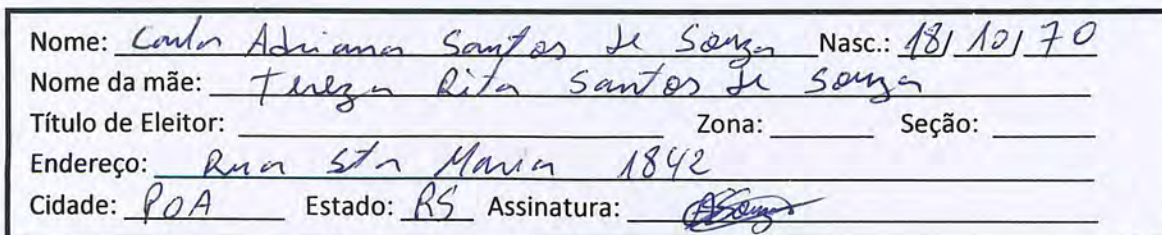 Nome: Carla Adriana Santos de Souza Nasc.: 18/10/70
Nome da mãe: Tereza Rita Santos de Souza
Título de Eleitor: Zona: Seção:
Endereço: Rua Sta Maria 1842
Cidade: POA Estado: RS Assinatura: ASouza